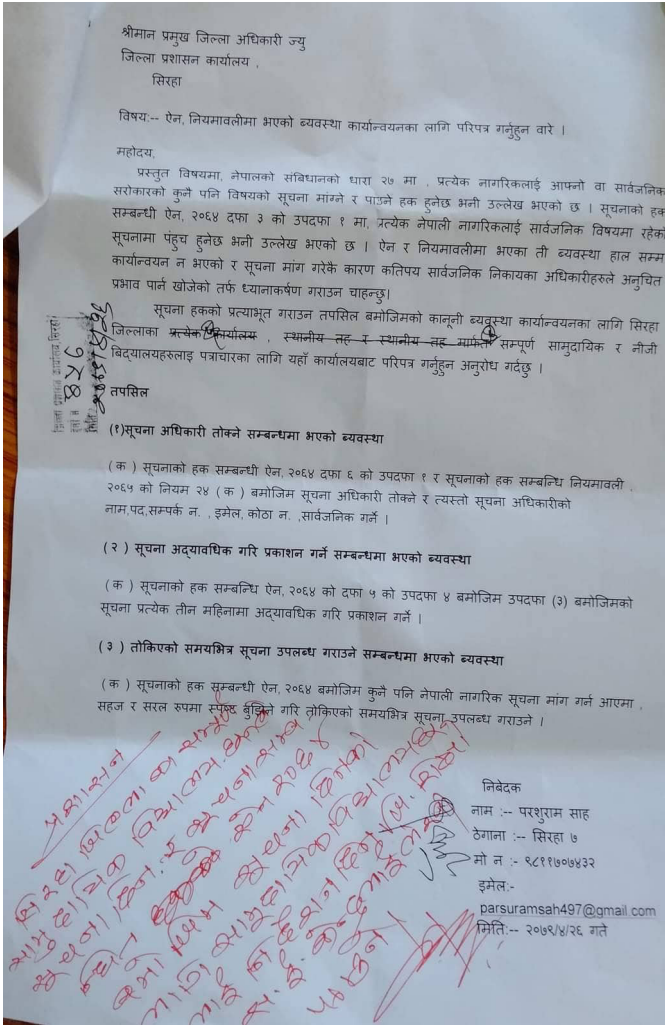 श्रीमान प्रमुख जिल्ला अधिकारी ज्यु
जिल्ला प्रशासन कार्यालय ,
सिरहा
विषय:-- ऐन, नियमावलीमा भएको ब्यवस्था कार्यान्वयनका लागि परिपत्र गर्नुहुन वारे ।
महोदय,
प्रस्तुत विषयमा, नेपालको संबिधानको धारा २७ मा , प्रत्येक नागरिकलाई आफ्नो वा सार्वजनिक
सरोकारको कुनै पनि विषयको सूचना मांग्ने र पाउने हक हुनेछ भनी उल्लेख भएको छ । सूचनाको हक
सम्बन्धी ऐन, २०६४ दफा ३ को उपदफा १ मा, प्रत्येक नेपाली नागरिकलाई सार्वजनिक विषयमा रहेको
सूचनामा पंहुच हुनेछ भनी उल्लेख भएको छ । ऐन र नियमावलीमा भएका ती ब्यवस्था हाल सम्म
कार्यान्वयन न भएको र सूचना मांग गरेकै कारण कतिपय सार्वजनिक निकायका अधिकारीहरुले अनुचित
प्रभाव पार्न खोजेको तर्फ ध्यानाकर्षण गराउन चाहन्छु।
सूचना हकको प्रत्याभूत गराउन तपसिल बमोजिमको कानूनी ब्यवस्था कार्यान्वयनका लागि सिरहा
जिल्लाका प्रत्येक कार्यालय , स्थानीय तह र स्थानीय तह मार्फत सम्पूर्ण सामुदायिक र नीजी
बिद्यालयहरुलाइ पत्राचारका लागि यहाँ कार्यालयबाट परिपत्र गर्नुहुन अनुरोध गर्दछु ।
जिल्ला प्रशासन कार्यालय, सिरहा
तपसिल
(१)सूचना अधिकारी तोक्ने सम्बन्धमा भएको ब्यवस्था
(क ) सूचनाको हक सम्बन्धी ऐन, २०६४ दफा ६ को उपदफा १ र सूचनाको हक सम्बन्धि नियमावली ,
२०६५ को नियम २४ (क ) बमोजिम सूचना अधिकारी तोक्ने र त्यस्तो सूचना अधिकारीको
नाम,पद,सम्पर्क न. ,इमेल, कोठा न. ,सार्वजनिक गर्ने ।
(२ ) सूचना अद्यावधिक गरि प्रकाशन गर्ने सम्बन्धमा भएको ब्यवस्था
(क ) सूचनाको हक सम्बन्धि ऐन, २०६४ को दफा ५ को उपदफा ४ बमोजिम उपदफा (३) बमोजिमको
सूचना प्रत्येक तीन महिनामा अद्यावधिक गरि प्रकाशन गर्ने ।
(३ ) तोकिएको समयभित्र सूचना उपलब्ध गराउने सम्बन्धमा भएको ब्यवस्था
(क ) सूचनाको हक सम्बन्धी ऐन, २०६४ बमोजिम कुनै पनि नेपाली नागरिक सूचना मांग गर्न आएमा ,
सहज र सरल रुपमा स्पष्ट बुझिने गरि तोकिएको समयभित्र सूचना उपलब्ध गराउने ।
प्रशासन
निबेदक
नाम :-- परशुराम साह
ठेगाना :-- सिरहा ७
मो न :- ९८११७०७४३२
इमेल:-
parsuramsah497@gmail.com
मिति:-- २०७९/४/२६ गते